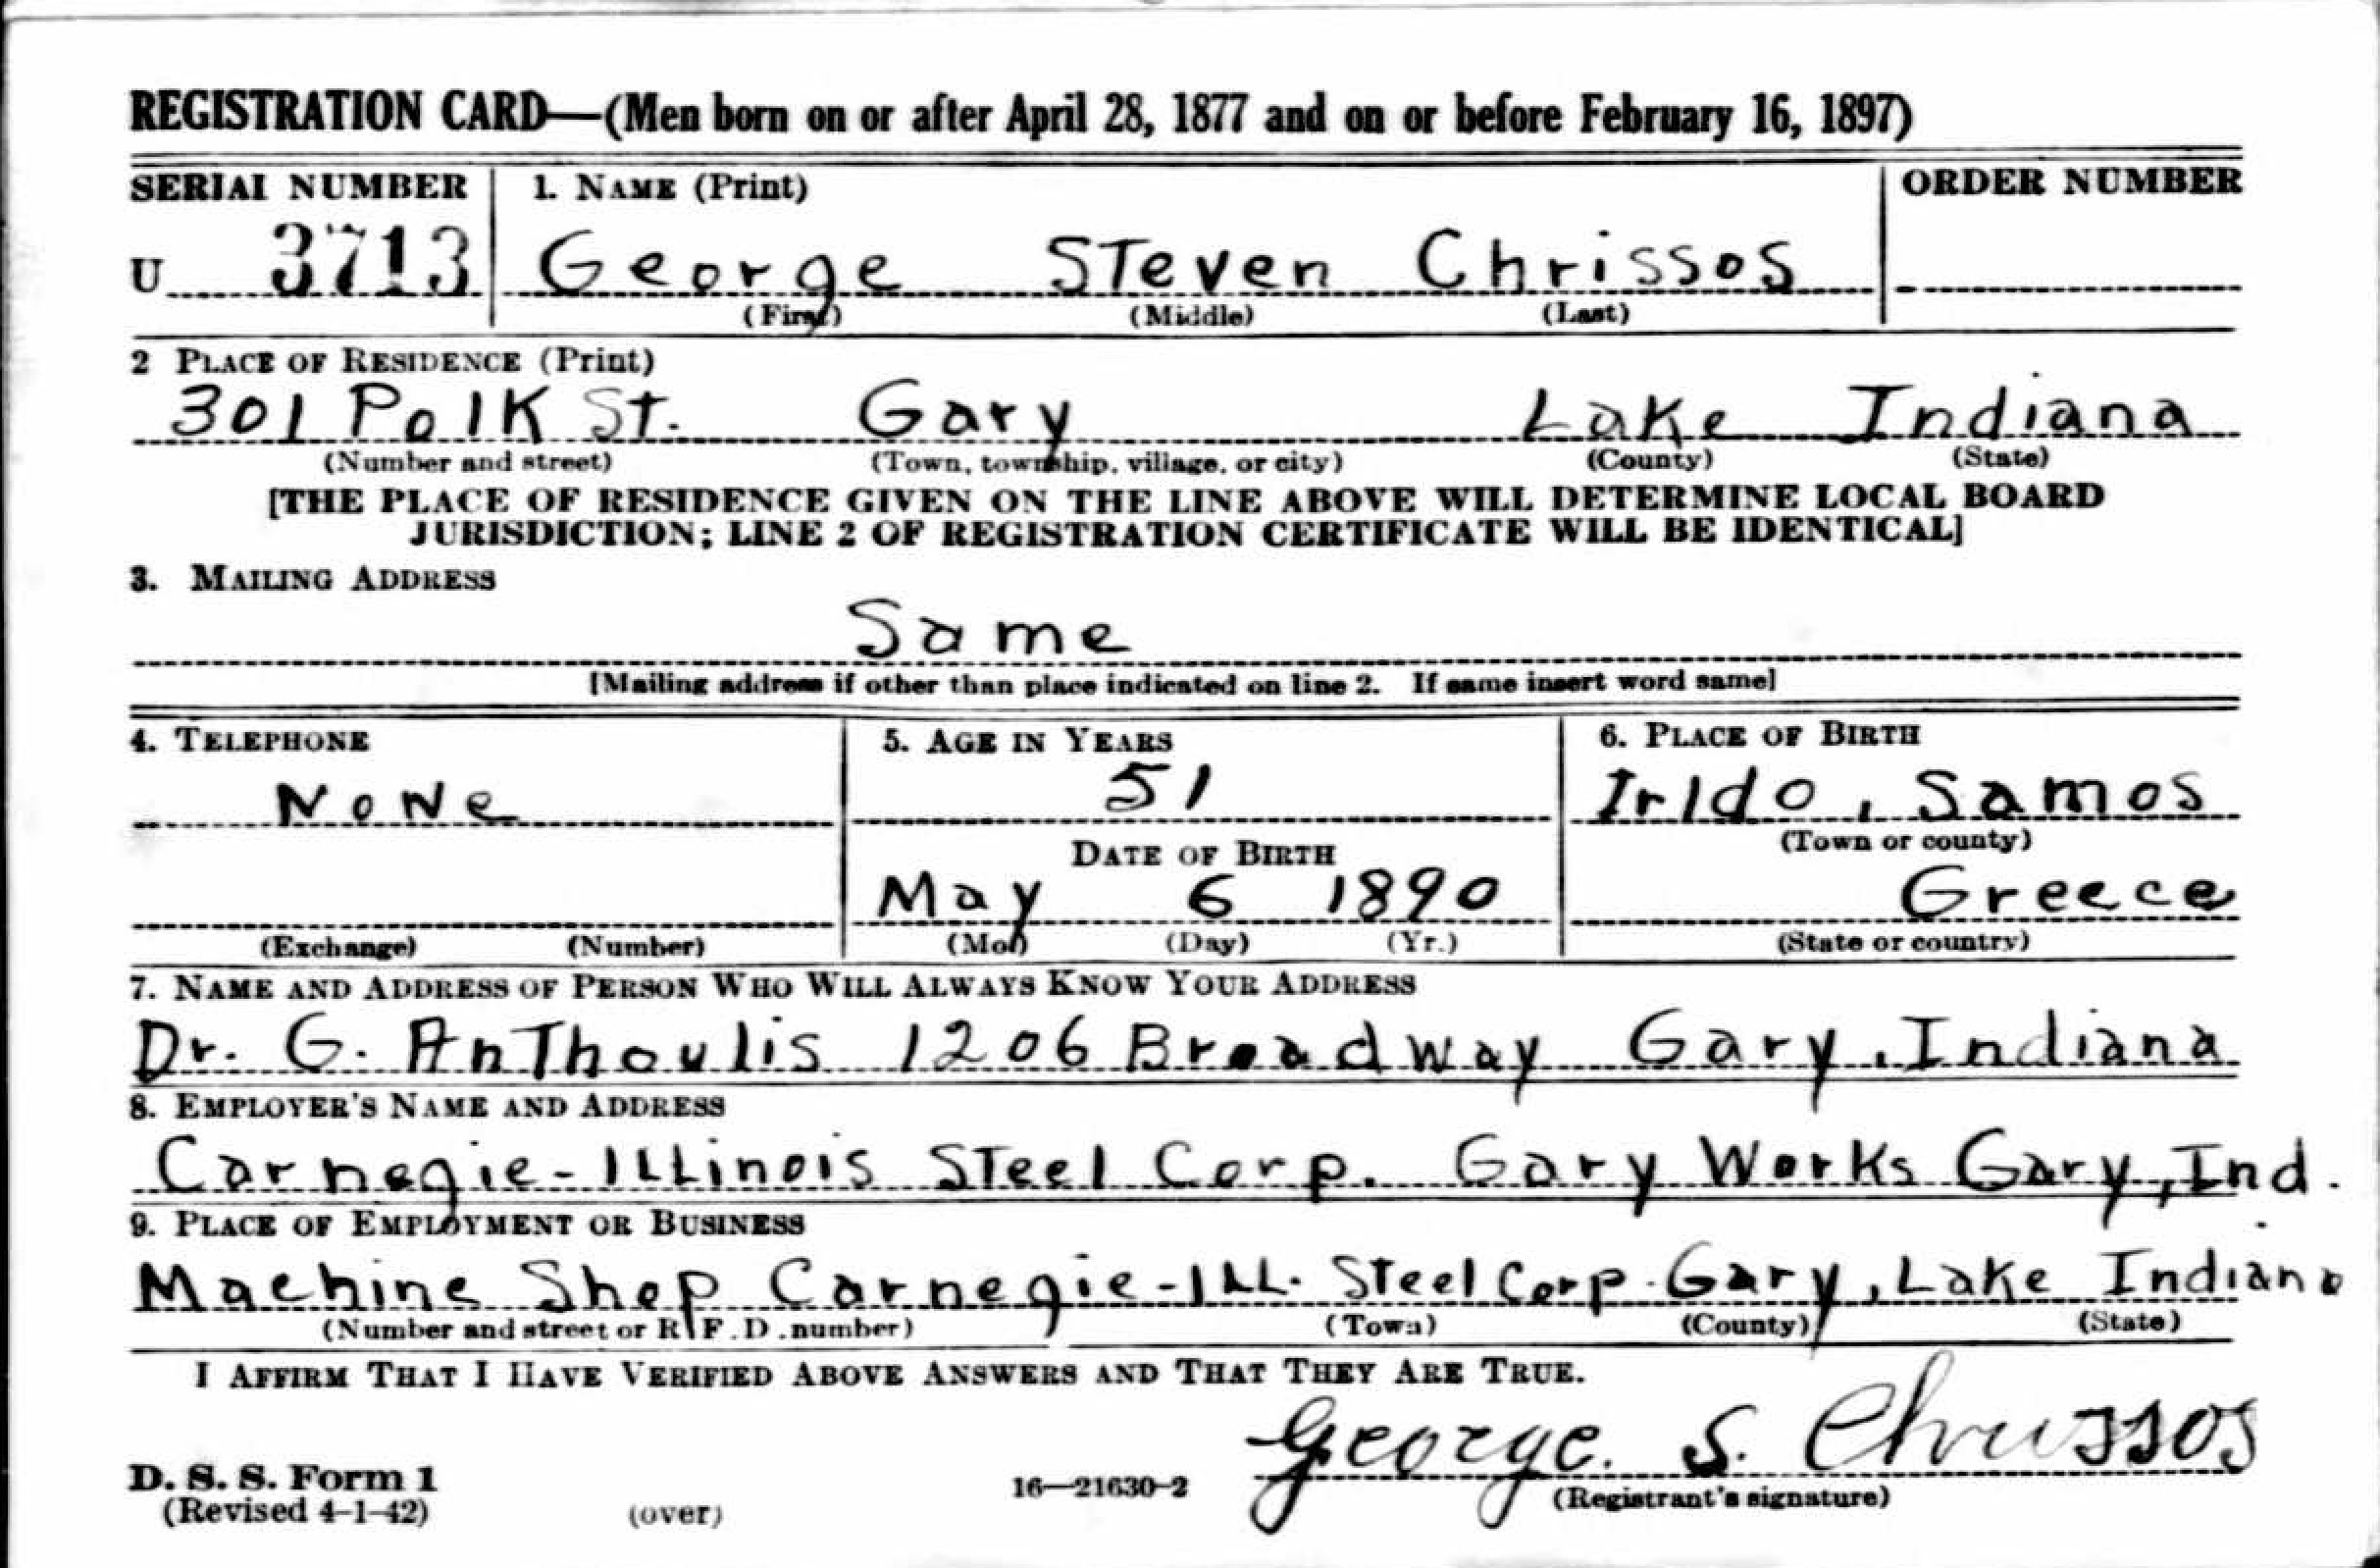 REGISTRATION CARD—(Men born on or after April 28, 1877 and on or before February 16, 1897)
SERIAL NUMBER 1. NAME (Print) ORDER NUMBER
U 3713 George STeven Chrissos
(First) (Middle) (Last)
2 PLACE OF RESIDENCE (Print)
301 Polk St. Gary Lake Indiana
(Number and street) (Town, township, village, or city) (County) (State)
[THE PLACE OF RESIDENCE GIVEN ON THE LINE ABOVE WILL DETERMINE LOCAL BOARD
JURISDICTION; LINE 2 OF REGISTRATION CERTIFICATE WILL BE IDENTICAL]
3. MAILING ADDRESS
Same
[Mailing address if other than place indicated on line 2. If same insert word same]
4. TELEPHONE 5. AGE IN YEARS 6. PLACE OF BIRTH
NoNe 51 Irldo, Samos
(Town or county)
DATE OF BIRTH
May 6 1890 Greece
(Exchange) (Number) (Mo.) (Day) (Yr.) (State or country)
7. NAME AND ADDRESS OF PERSON WHO WILL ALWAYS KNOW YOUR ADDRESS
Dr. G. AnThoulis 1206 Broadway Gary, Indiana
8. EMPLOYER'S NAME AND ADDRESS
Carnegie-ILLinois STeel Corp. Gary Works Gary, Ind.
9. PLACE OF EMPLOYMENT OR BUSINESS
Machine Shop Carnegie-ILL. Steel Corp. Gary, Lake Indiana
(Number and street or R.F.D. number) (Town) (County) (State)
I AFFIRM THAT I HAVE VERIFIED ABOVE ANSWERS AND THAT THEY ARE TRUE.
George. S. Chrissos
D. S. S. Form 1 16—21630-2 (Registrant's signature)
(Revised 4-1-42) (over)